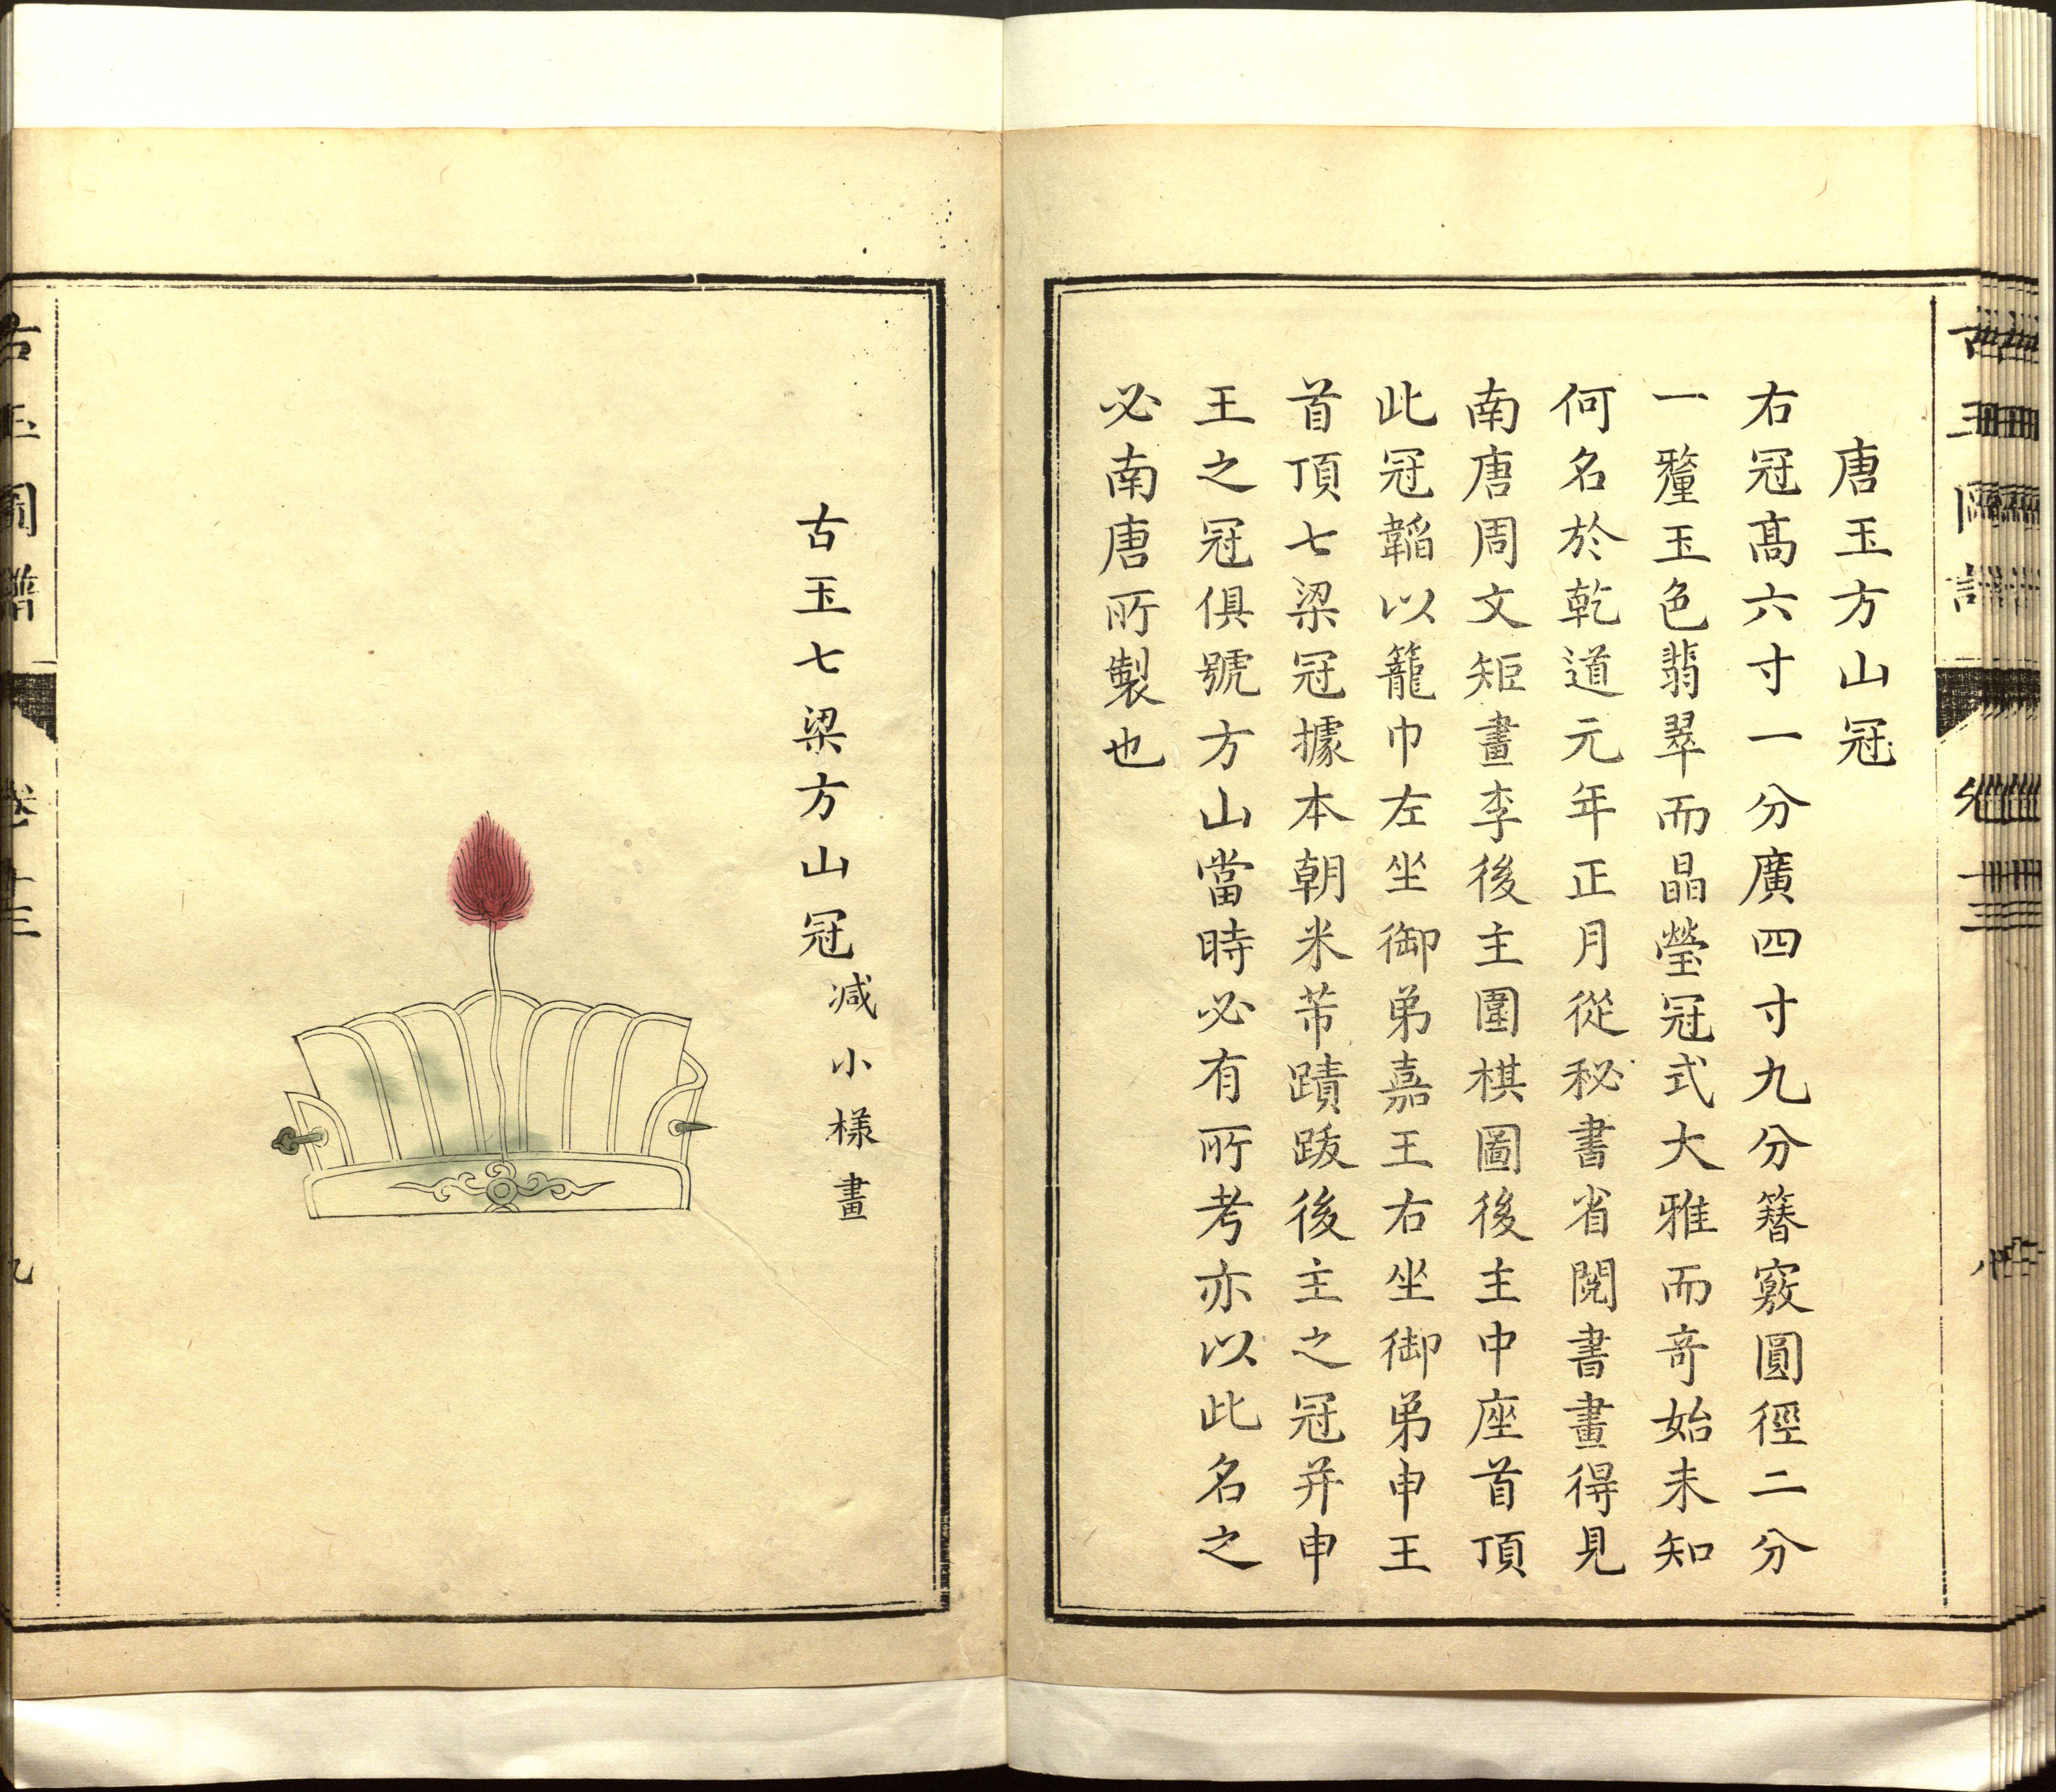 唐玉方山冠
右冠高六寸一分廣四寸九分簪竅圓徑二分
一釐玉色翡翠而晶瑩冠式大雅而竒始未知
何名於乾道元年正月從秘書省閱書畫得見
南唐周文矩畫李後主圍棋圖後主中座首頂
此冠韜以籠巾左坐御弟嘉王右坐御弟申王
首頂七梁冠據本朝米芾蹟跋後主之冠并申
王之冠俱號方山當時必有所考亦以此名之
必南唐所製也
古玉七梁方山冠減小樣畫
古玉圖譜 卷十三 九